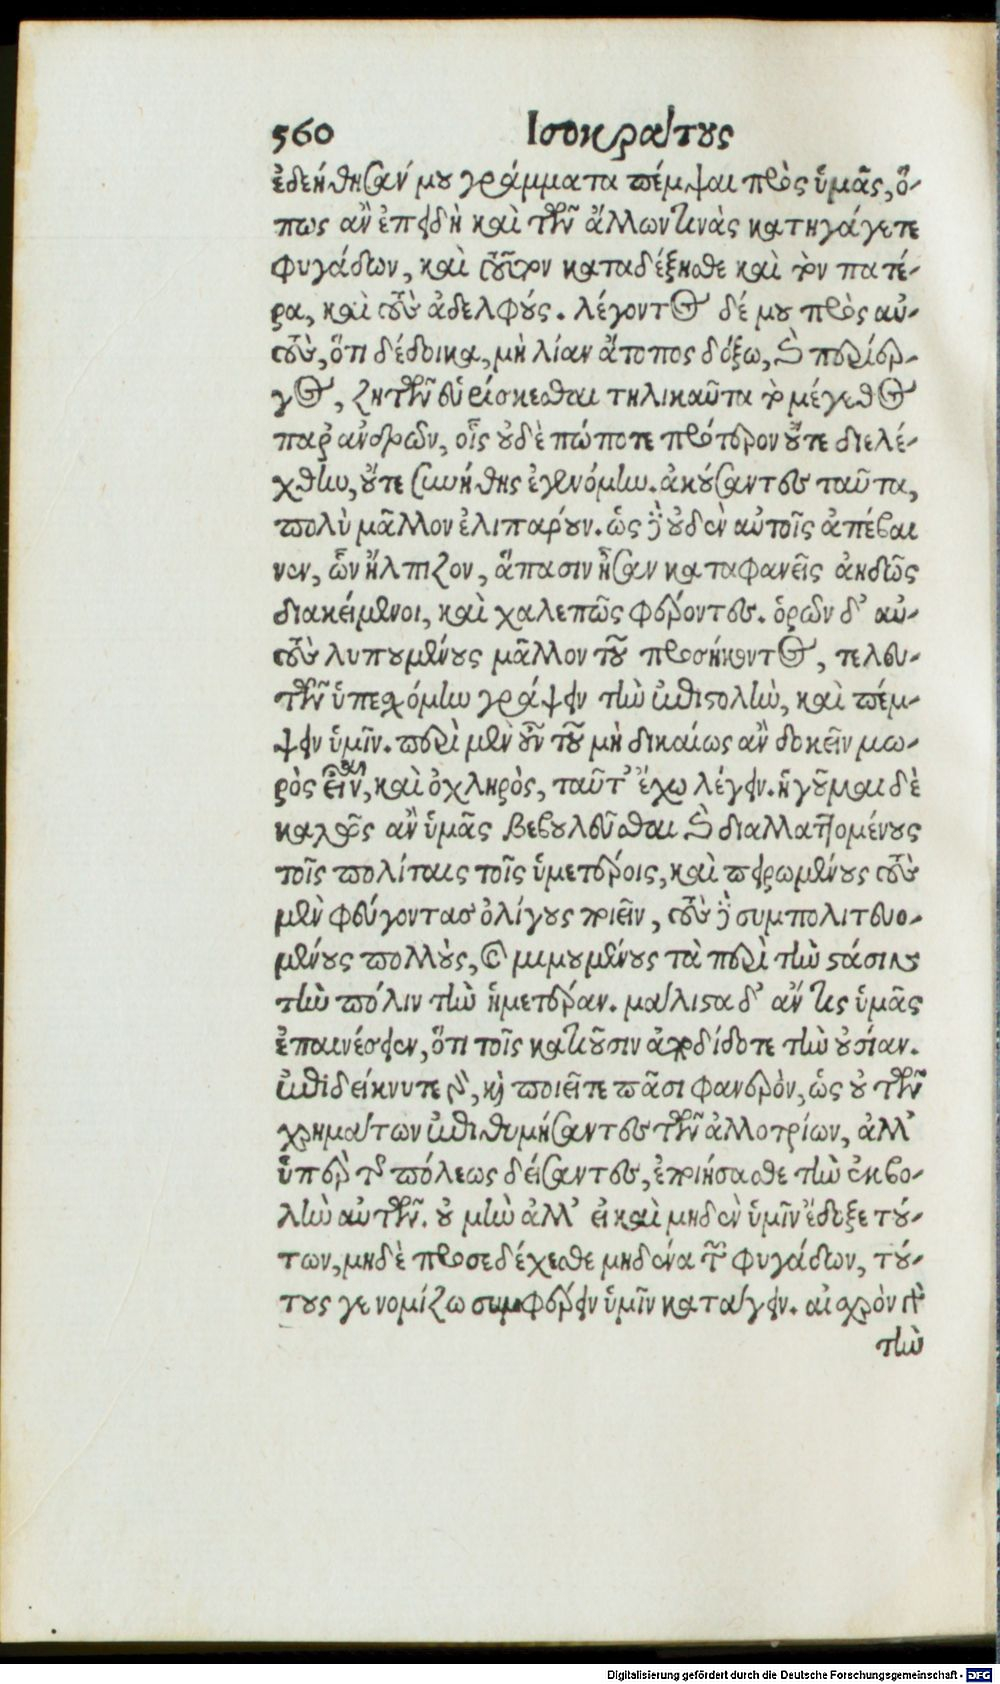 560 Ἰσοκράτους
ἐδεήθησάν μου γράμματα πέμψαι πρὸς ὑμᾶς, ὅ-
πως ἂν ἐπειδὴ καὶ τῶν ἄλλων τινὰς κατηγάγετε
φυγάδων, καὶ τοῦτον καταδέξησθε καὶ τὸν πατέ-
ρα, καὶ τοὺς ἀδελφούς. λέγοντος δέ μου πρὸς αὐ-
τοὺς, ὅτι δέδοικα, μὴ λίαν ἄτοπος δόξω, καὶ περίερ-
γος, ζητῶν εὑρίσκεσθαι τηλικαῦτα τὸ μέγεθος
παρ' ἀνδρῶν, οἷς οὐδὲ πώποτε πρότερον οὔτε διελέ-
χθην, οὔτε συνήθης ἐγενόμην. ἀκούσαντες ταῦτα,
πολὺ μᾶλλον ἐλιπάρουν. ὡς δὲ οὐδὲν αὐτοῖς ἀπέβαι
νεν, ὧν ἤλπιζον, ἅπασιν ἦσαν καταφανεῖς ἀηδῶς
διακείμενοι, καὶ χαλεπῶς φέροντες. ὁρῶν δ' αὐ-
τοὺς λυπουμένους μᾶλλον τοῦ προσήκοντος, τελευ-
τῶν ὑπεχόμην γράψειν τὴν ἐπιστολὴν, καὶ πέμ-
ψειν ὑμῖν. περὶ μὲν οὖν τοῦ μὴ δικαίως ἂν δοκεῖν μω-
ρὸς εἶναι, καὶ ὀχληρὸς, ταῦτ' ἔχω λέγειν. ἡγοῦμαι δὲ
καλῶς ἂν ὑμᾶς βεβουλεῦσθαι καὶ διαλλαττομένους
τοῖς πολίταις τοῖς ὑμετέροις, καὶ πειρωμένους τοὺς
μὲν φεύγοντας ὀλίγους ποιεῖν, τοὺς δὲ συμπολιτευο-
μένους πολλοὺς, καὶ μιμουμένους τὰ περὶ τὴν στάσιν
τὴν πόλιν τὴν ἡμετέραν. μάλιστα δ' ἄν τις ὑμᾶς
ἐπαινέσειεν, ὅτι τοῖς κατιοῦσιν ἀποδίδοτε τὴν οὐσίαν.
ἐπιδείκνυτε γὰρ, καὶ ποιεῖτε πᾶσι φανερὸν, ὡς οὐ τῶν
χρημάτων ἐπιθυμήσαντες τῶν ἀλλοτρίων, ἀλλ'
ὑπὲρ τῆς πόλεως δείσαντες, ἐποιήσασθε τὴν ἐκβο-
λὴν αὐτῶν. οὐ μὴν ἀλλ' εἰ καὶ μηδὲν ὑμῖν ἔδοξε τού-
των, μηδὲ προσεδέχεσθε μηδένα τῶν φυγάδων, τού-
τους γε νομίζω συμφέρειν ὑμῖν κατάγειν. αἰσχρὸν γὰρ
τὴν
Digitalisierung gefördert durch die Deutsche Forschungsgemeinschaft - DFG